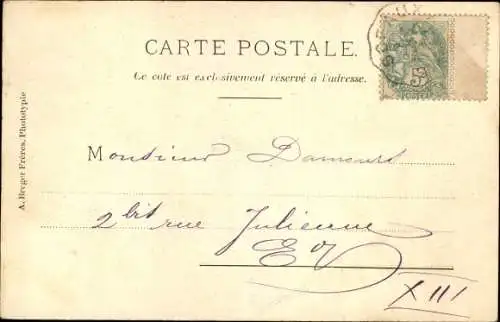 CARTE POSTALE.
Ce côté est exclusivement réservé à l'adresse.
A. Berger Frères, Phototypie
5
Monsieur Damours
2 bis rue Julienne
EV
XIII